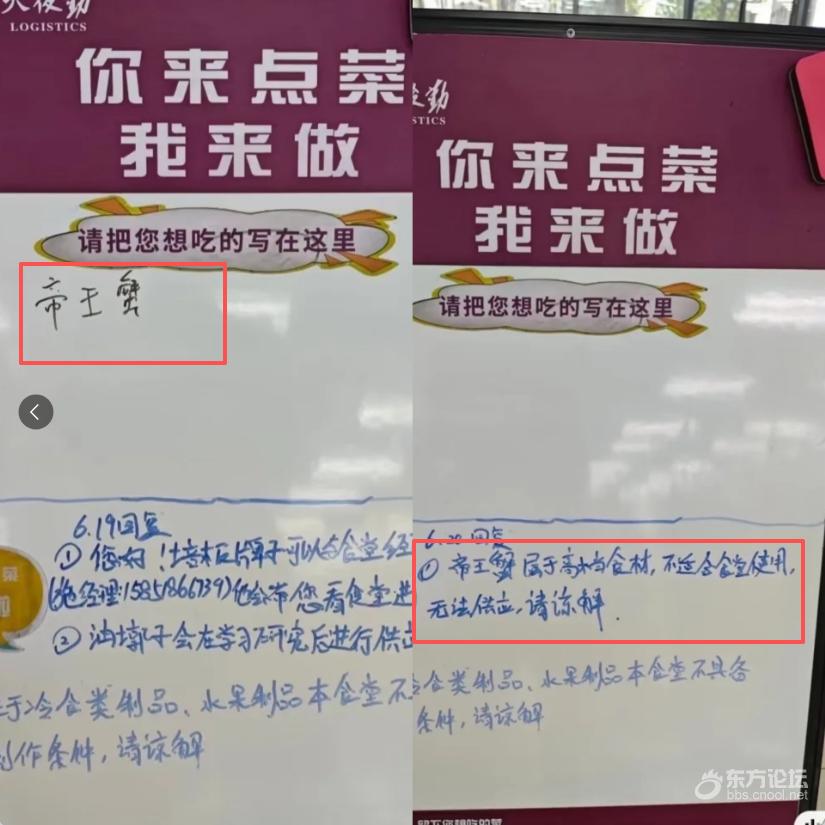 后勤
LOGISTICS
你来点菜
我来做
请把您想吃的写在这里
帝王蟹
6.19回复
①您好!
牌子可以与食堂经
经理:15851866739)他会带您看食堂进
②油墩子会在学习研究后进行供应
于冷食类制品、水果制品本食堂不
制作条件,请谅解
菜
勤
STICS
你来点菜
我来做
请把您想吃的写在这里
6.20回复
①帝王蟹属于高档食材,不适合食堂使用,
无法供应,请谅解.
冷食类制品、水果制品本食堂不具备
条件,请谅解
留下您想吃的菜
东方论坛
bbs.cnool.net